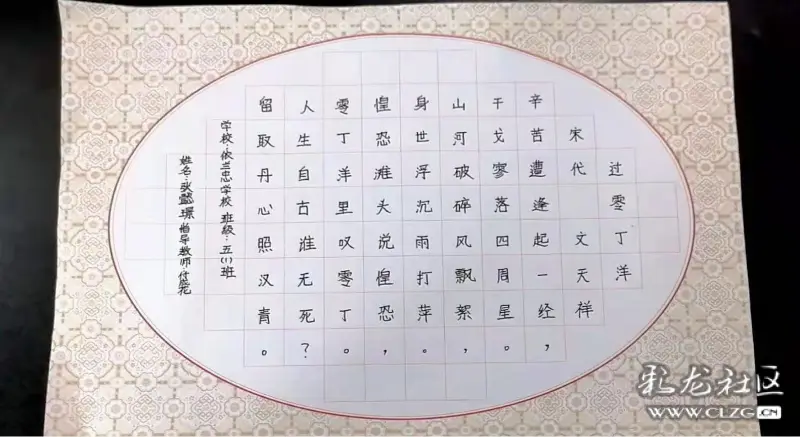 过零丁洋
宋代 文天祥
辛苦遭逢起一经，
干戈寥落四周星。
山河破碎风飘絮，
身世浮沉雨打萍。
惶恐滩头说惶恐，
零丁洋里叹零丁。
人生自古谁无死？
留取丹心照汉青。
学校：依兰忠学校 班级：五(1)班
姓名： 指导教师
彩龙社区
WWW.CLZG.CN